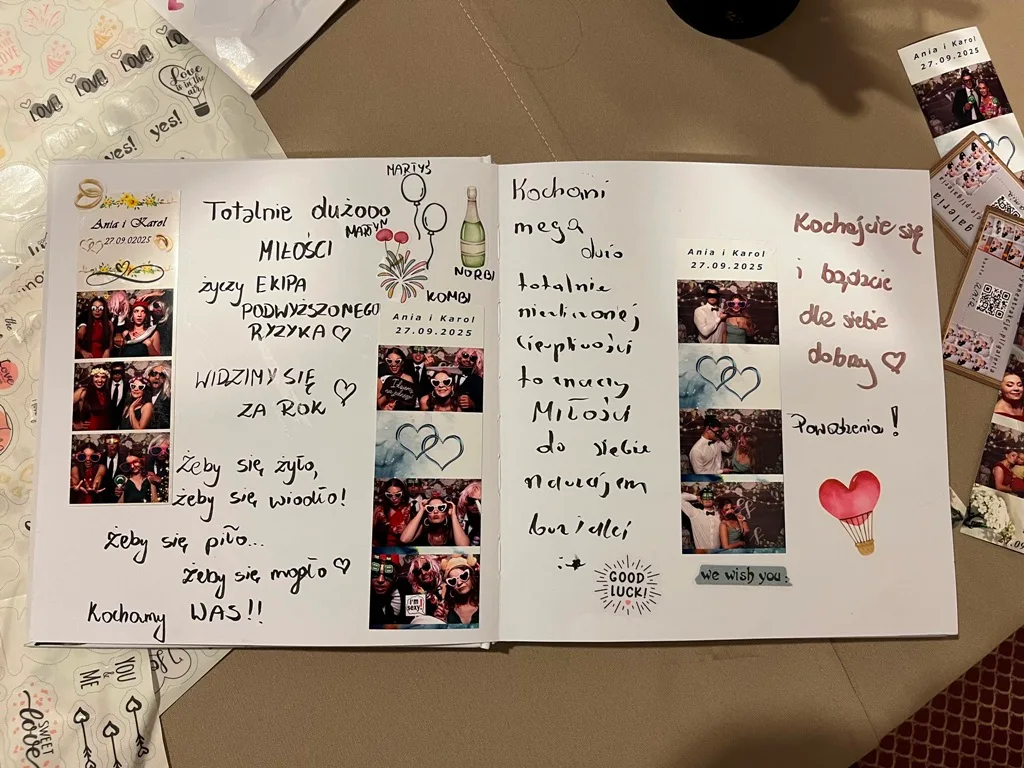 LOVE!
LOVE!
LOVE!
Love
is in the
air
yes!
yes!
Ania i Karol
27.09.2025
Ania i Karol
27.09.02025
Totalnie dużooo
MIŁOŚCI
życzy EKIPA
PODWYŻSZONEGO
RYZYKA ♡
WIDZIMY SIĘ ♡
ZA ROK
Żeby się żyło,
żeby się wiodło!
Żeby się piło...
Żeby się mogło ♡
Kochamy WAS!!
MARTYŚ
MARTYN
NORBI
KOMBI
Ania i Karol
27.09.2025
I'm sexy!
Kochani
mega
dużo
totalnie
cierpliwości
MIŁOŚCI
do siebie
GOOD
LUCK!
Ania i Karol
27.09.2025
we wish you:
Kochajcie się
i bądźcie
dla siebie
dobrzy ♡
Powodzenia!
YOU
&
ME
SWEET
love